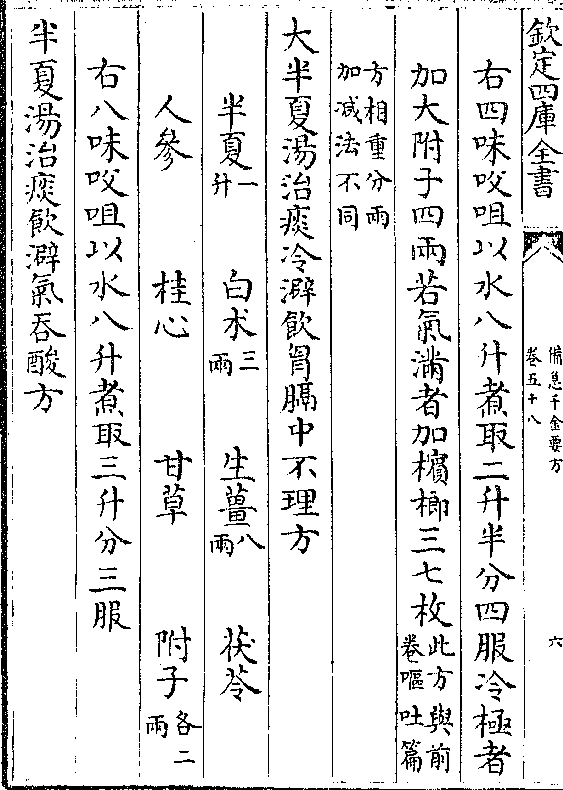 欽定四庫全書
備急千金要方
卷五十八
六
右四味㕮咀以水八升煮取二升半分四服冷極者
加大附子四兩若氣滿者加檳榔三七枚此方與前卷嘔吐篇
方相重分兩加減法不同
大半夏湯治痰冷澼飲胷膈中不理方
半夏一升 白术三兩 生薑八兩 茯苓
人參 桂心 甘草 附子各二兩
右八味㕮咀以水八升煮取三升分三服
半夏湯治痰飲澼氣吞酸方